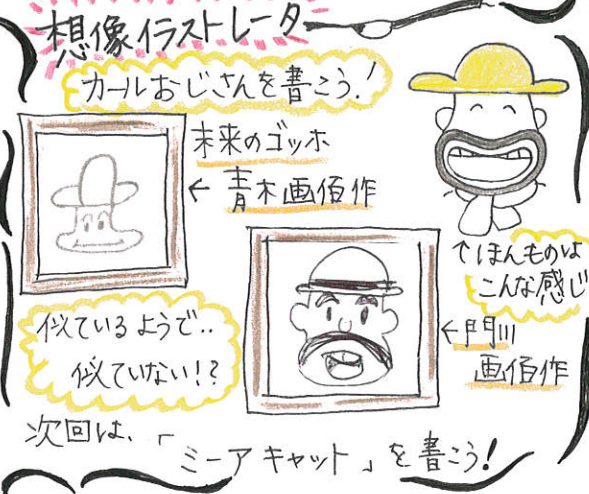 想像イラストレーター
カールおじさんを書こう!
未来のゴッホ
← 青木画伯作
↑ほんものは
こんな感じ
似ているようで‥
似ていない!?
←門川
画伯作
次回は、「ミーアキャット」を書こう!